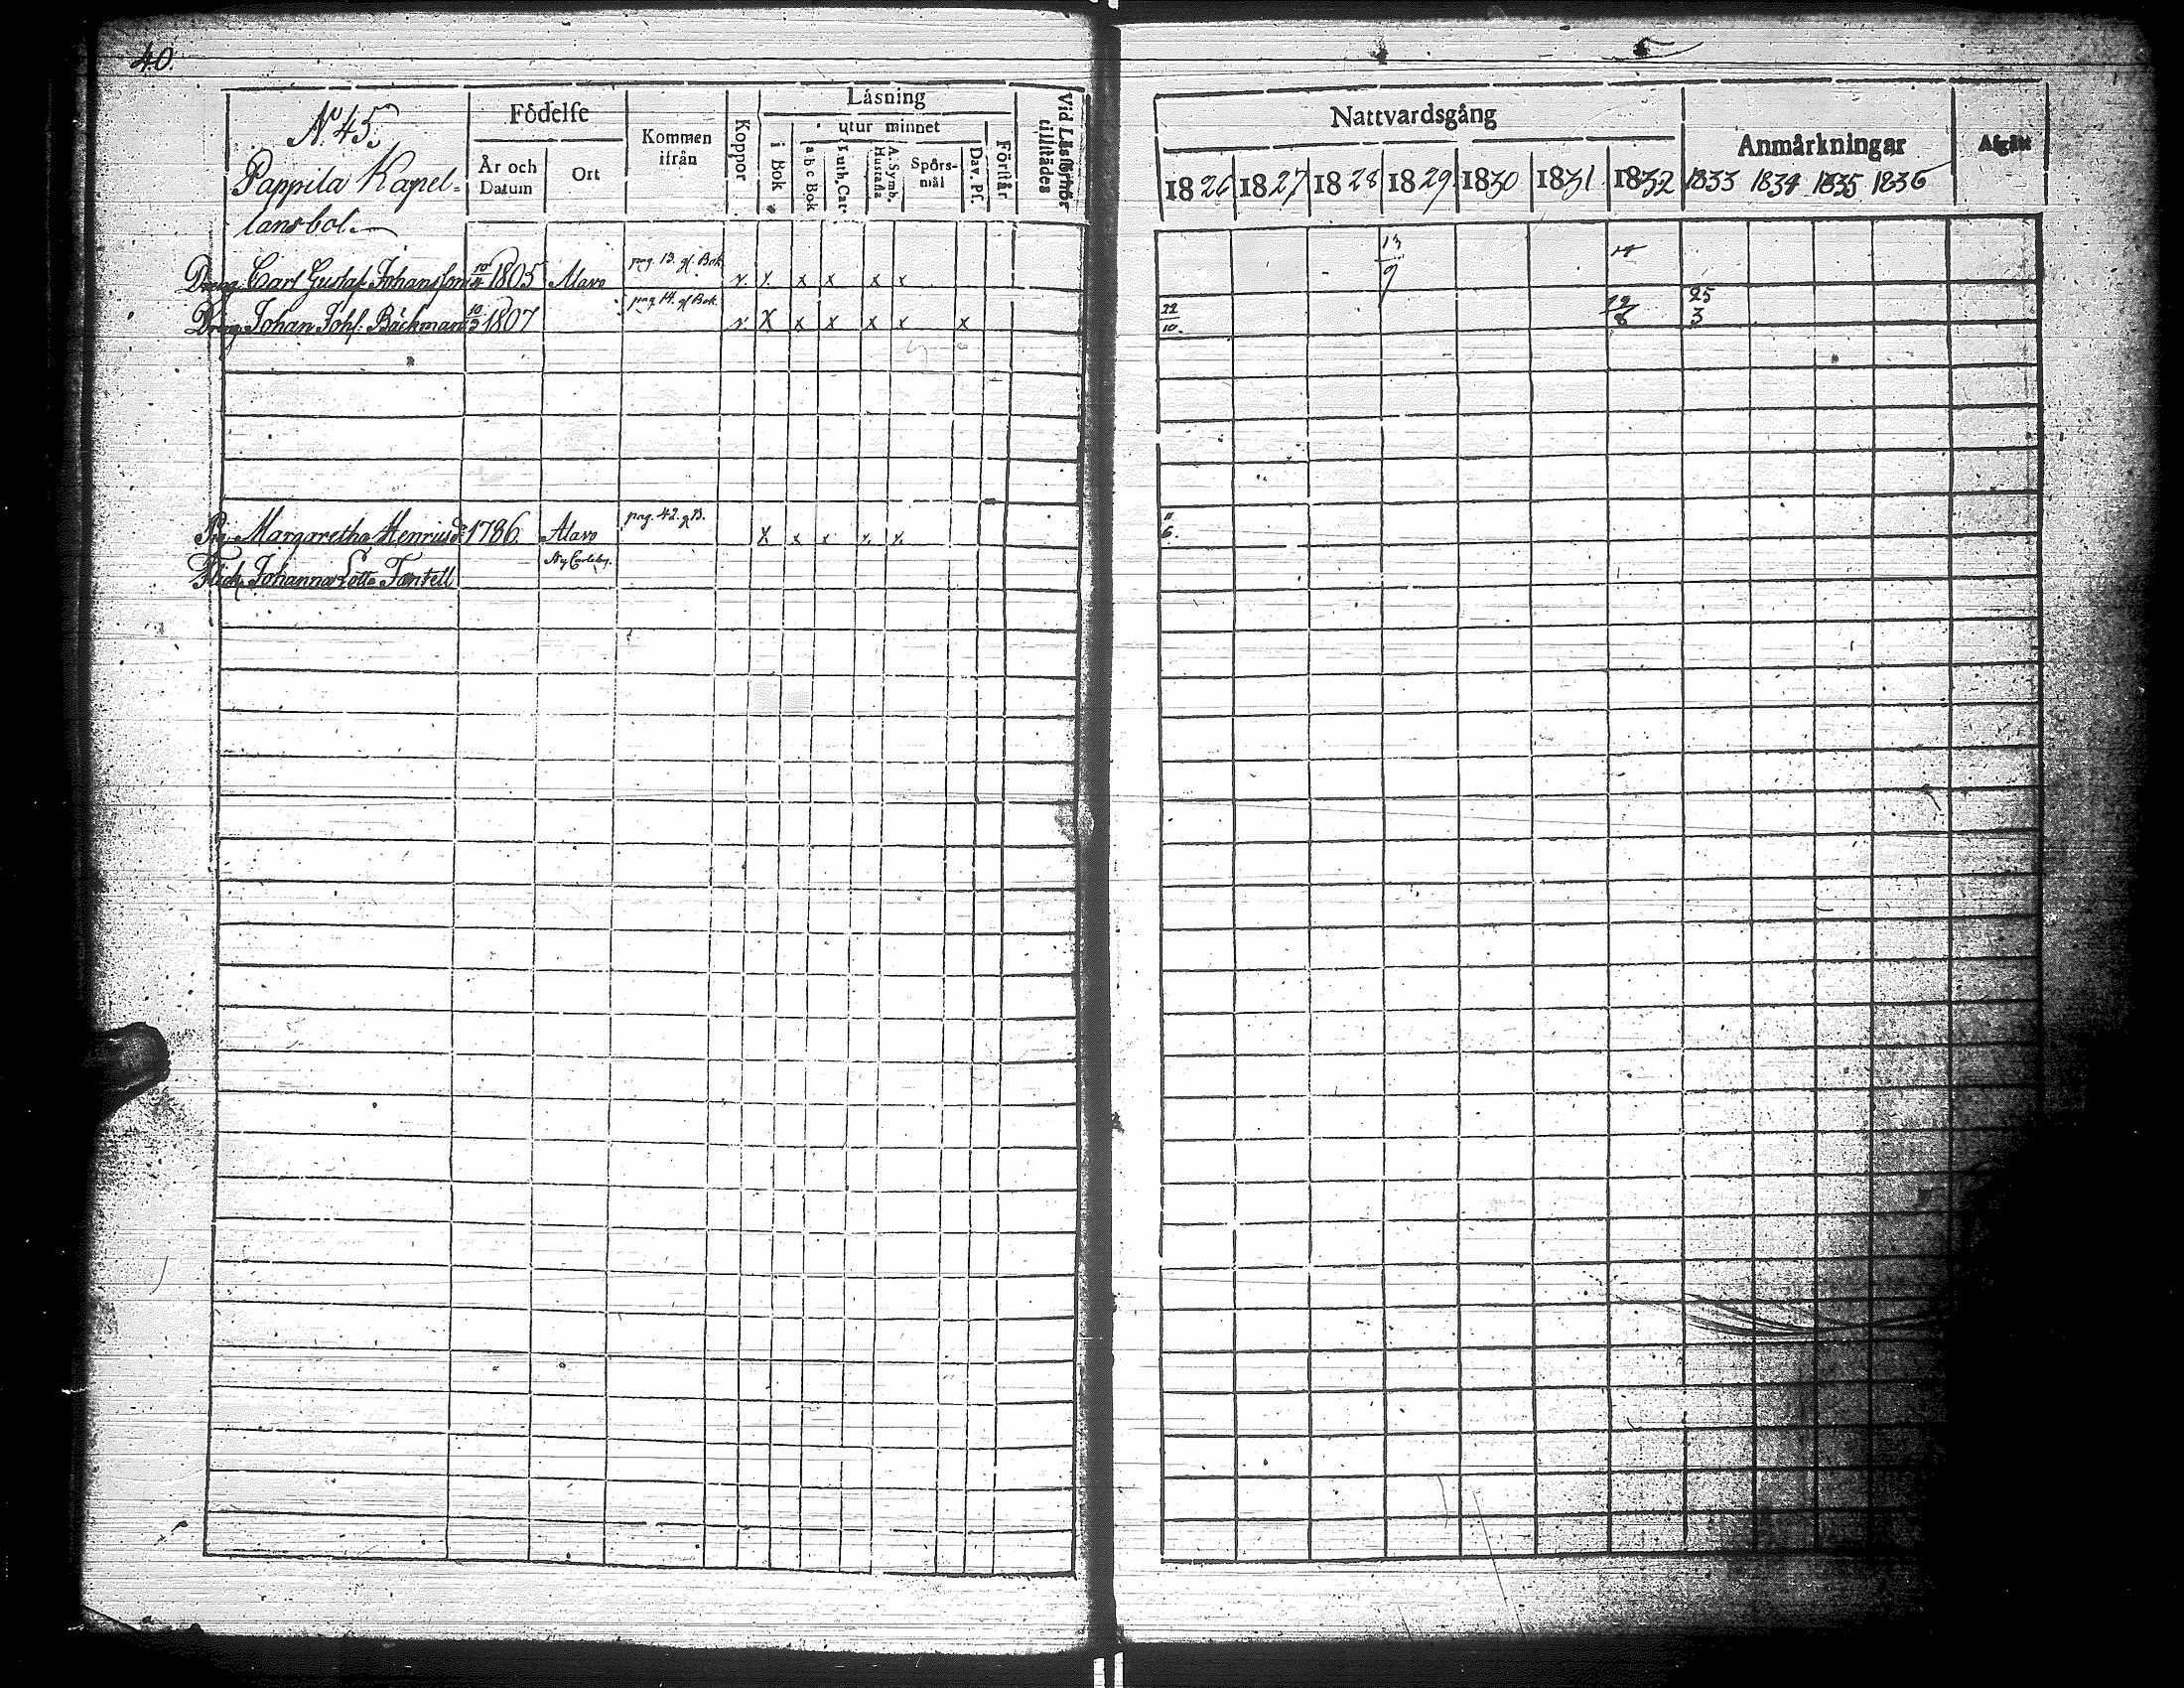 40.
N. 45.
Pappila Kapel-
lansbol.
Födelse
År och
Datum
Ort
Kommen
ifrån
Koppor
Läsning
i Bok
utur minnet
a b c Bok
Luth. Cat.
Hustafla
A. Symb.
Spörs-
mål
Dav. Ps.
Förstår
Vid Läsförhör
tillstädes
Nattvardsgång
1826 1827 1828 1829 1830 1831 1832
Anmärkningar
1833 1834 1835 1836
Afgått
Dreng Carl Gustaf Johansson 10/4 1805 Alavo pag. 13. gl. Bok v. x x x x x 13/9
Dreng Johan Johs. Bäckman 10/3 1807 pag 14. gl Bok. v. X x x x x x 22/10. 12/8 25 3
Pig. Margaretha Henricsd. 1786 Alavo pag. 42. g B. X x x x x 11 6.
Flick. Johanna Lotta Forsell Ny Carleby.